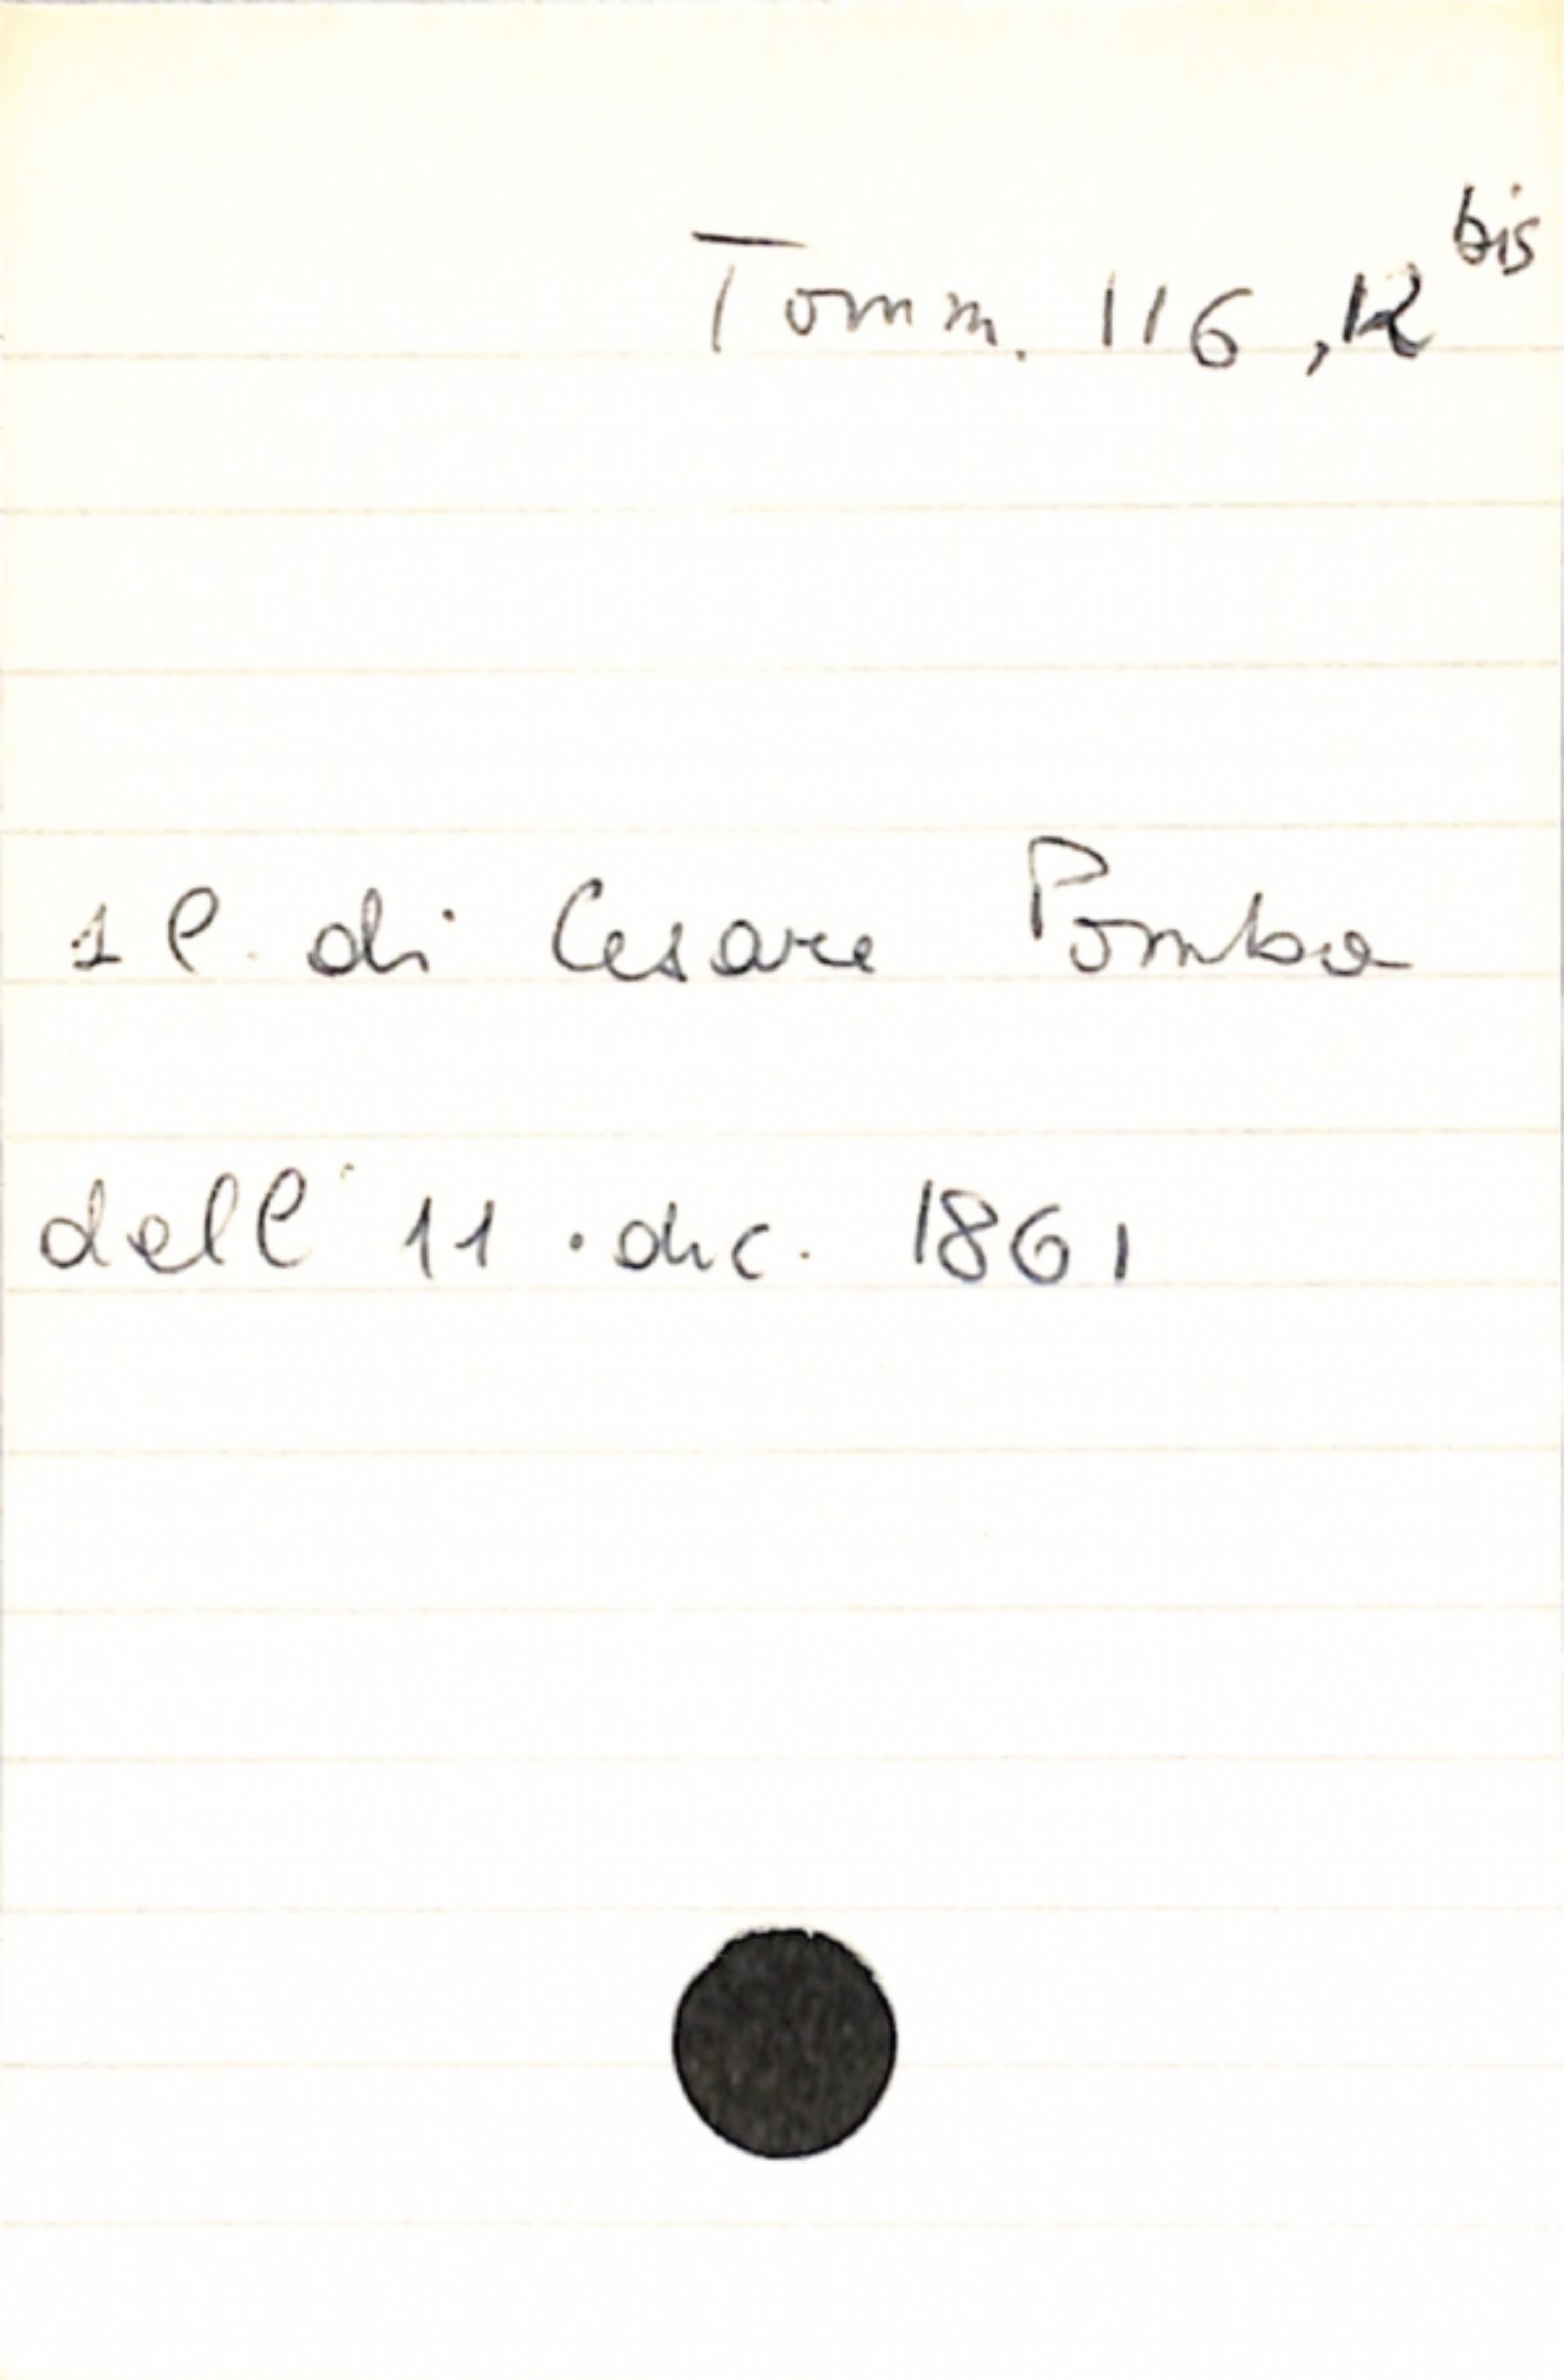 Tomm. 116, 12 bis
1 l. di Cesare Pomba
dell' 11 . dic. 1861